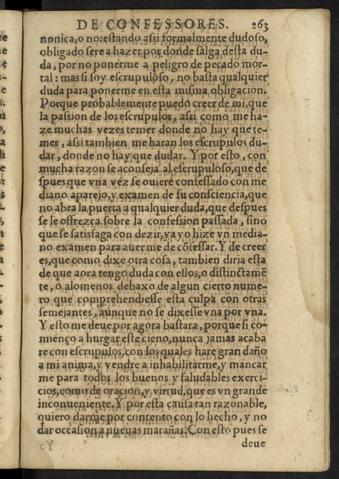 DE CONFESSORES. 263
nonica, o no: estando assi formalmente dudoso,
obligado sere a hazer por donde salga desta du-
da, por no ponerme a peligro de pecado mor-
tal: mas si soy escrupuloso, no basta qualquier
duda para ponerme en esta misma obligacion.
Porque probablemente puedo creer de mi, que
la passion de los escrupulos, assi como me ha-
ze muchas vezes temer donde no hay que te-
mer, assi tambien me haran los escrupulos du-
dar, donde no hay que dudar. Y por esto, con
mucha razon se aconseja al escrupuloso, que de
spues que vna vez se ouiere confessado con me
diano aparejo, y examen de su consciencia, que
no abra la puerta a qualquier duda, que despues
se le ofrezca sobre la confession passada, sino
que se satisfaga con dezir, ya yo hize vn media-
no examen para auerme de cõfessar. Y de creer
es, que como dixe otra cosa, tambien diria esta
de que aora tengo duda con ellos, o distinctamẽ
te, o alomenos debaxo de algun cierto nume-
ro que comprehendiesse esta culpa con otras
semejantes, aunque no se dixesse vna por vna.
Y esto me deue por agora bastara, porque si co-
mienço a hurgar este cieno, nunca jamas acaba
re con escrupulos, con los quales hare gran daño
a mi anima, y vendre a inhabilitarme, y mancar
me para todos los buenos y saludables exerci-
cios, como de oracion, y virtud, que es vn grande
inconueniente. Y por esta causa tan razonable,
quiero darme por contento con lo hecho, y no
dar occasion a nueuas marañas. Con esto pues se
deue